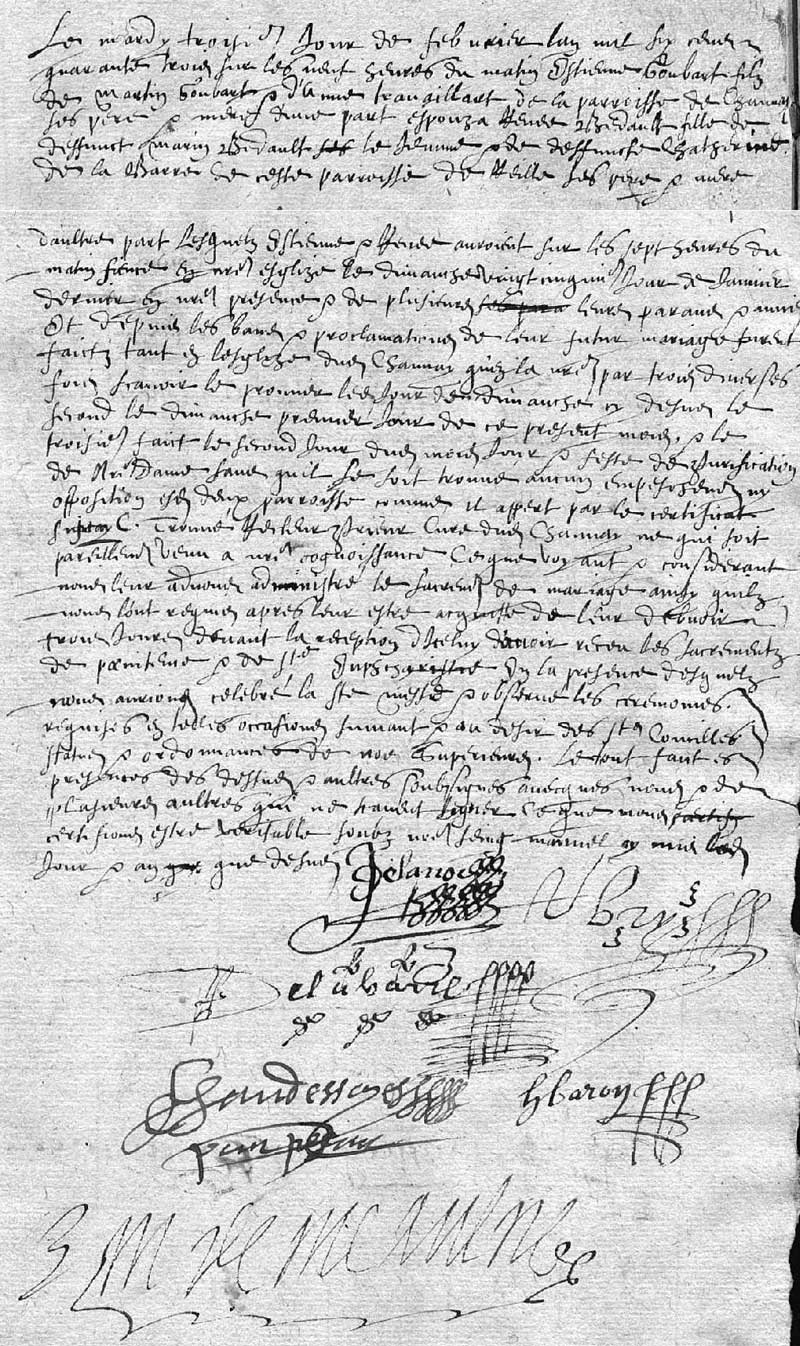 Le mardy troisie Jour de febvrier lan mil six cens
quarante trois sur les neuf heures du matin Estienne Goubart filz
de Martin Goubart & d'Anne travaillart de la parroisse de Channay
ses pere & mere dune part espouza Renee Bedault fille de
deffunct Marin Bedault ses le Jeune & de deffuncte Chatherine
de la Barre de ceste parroisse de Rille ses pere & mere
daultre part Lesquelz Estienne & Renee auroient sur les sept heures du
matin fience en nre esglize le dimanche vingt cinquie Jour de Janvier
dernier en nre presence & de plusieurs leurs parans & amis
Et depuis les bans & proclamations de leur futur mariage furent
faictz tant en lesglize dud Channay quen la nre par trois diverses
fois scavoir le premier led Jour de dimanche cy dessus le
second le dimanche premier Jour de ce present mois & le
troisie faict le second Jour dud mois Jour & feste de Purification
de Nre Dame sans quil se soit trouve aucun empeschement ny
opposition esd deux parroisse comme il appert par le certificat
C. Tronne Recteur Prieur Cure dud Channay ne qui soit
pareillemt venu a nre cognoissance Ceque voyant & considerant
nous leur advons administre le sacremt de mariage ainsy quilz
nous lont requis apres leur estre acquitte de leur debvoir
trois Jours devant la reception dIceluy davoir receu les sacrements
de penitence & de ste En la presence desquelz
nous aurions celebre la ste messe & observe les ceremonies
requises en telles occasions suivant & au desir des sts Conciles
status & ordonnances de nos Superieurs. Le tout faict es
presences des dessus & aultres soubsignes avecques nous & de
plusieurs aultres qui ne scavent signer Ceque nous certifi
certifions estre veritable soubz nre seing manuel cy mis les
Jour & an que dessus Delanoe
Ubry
Delabarre
Chandesson hbaron